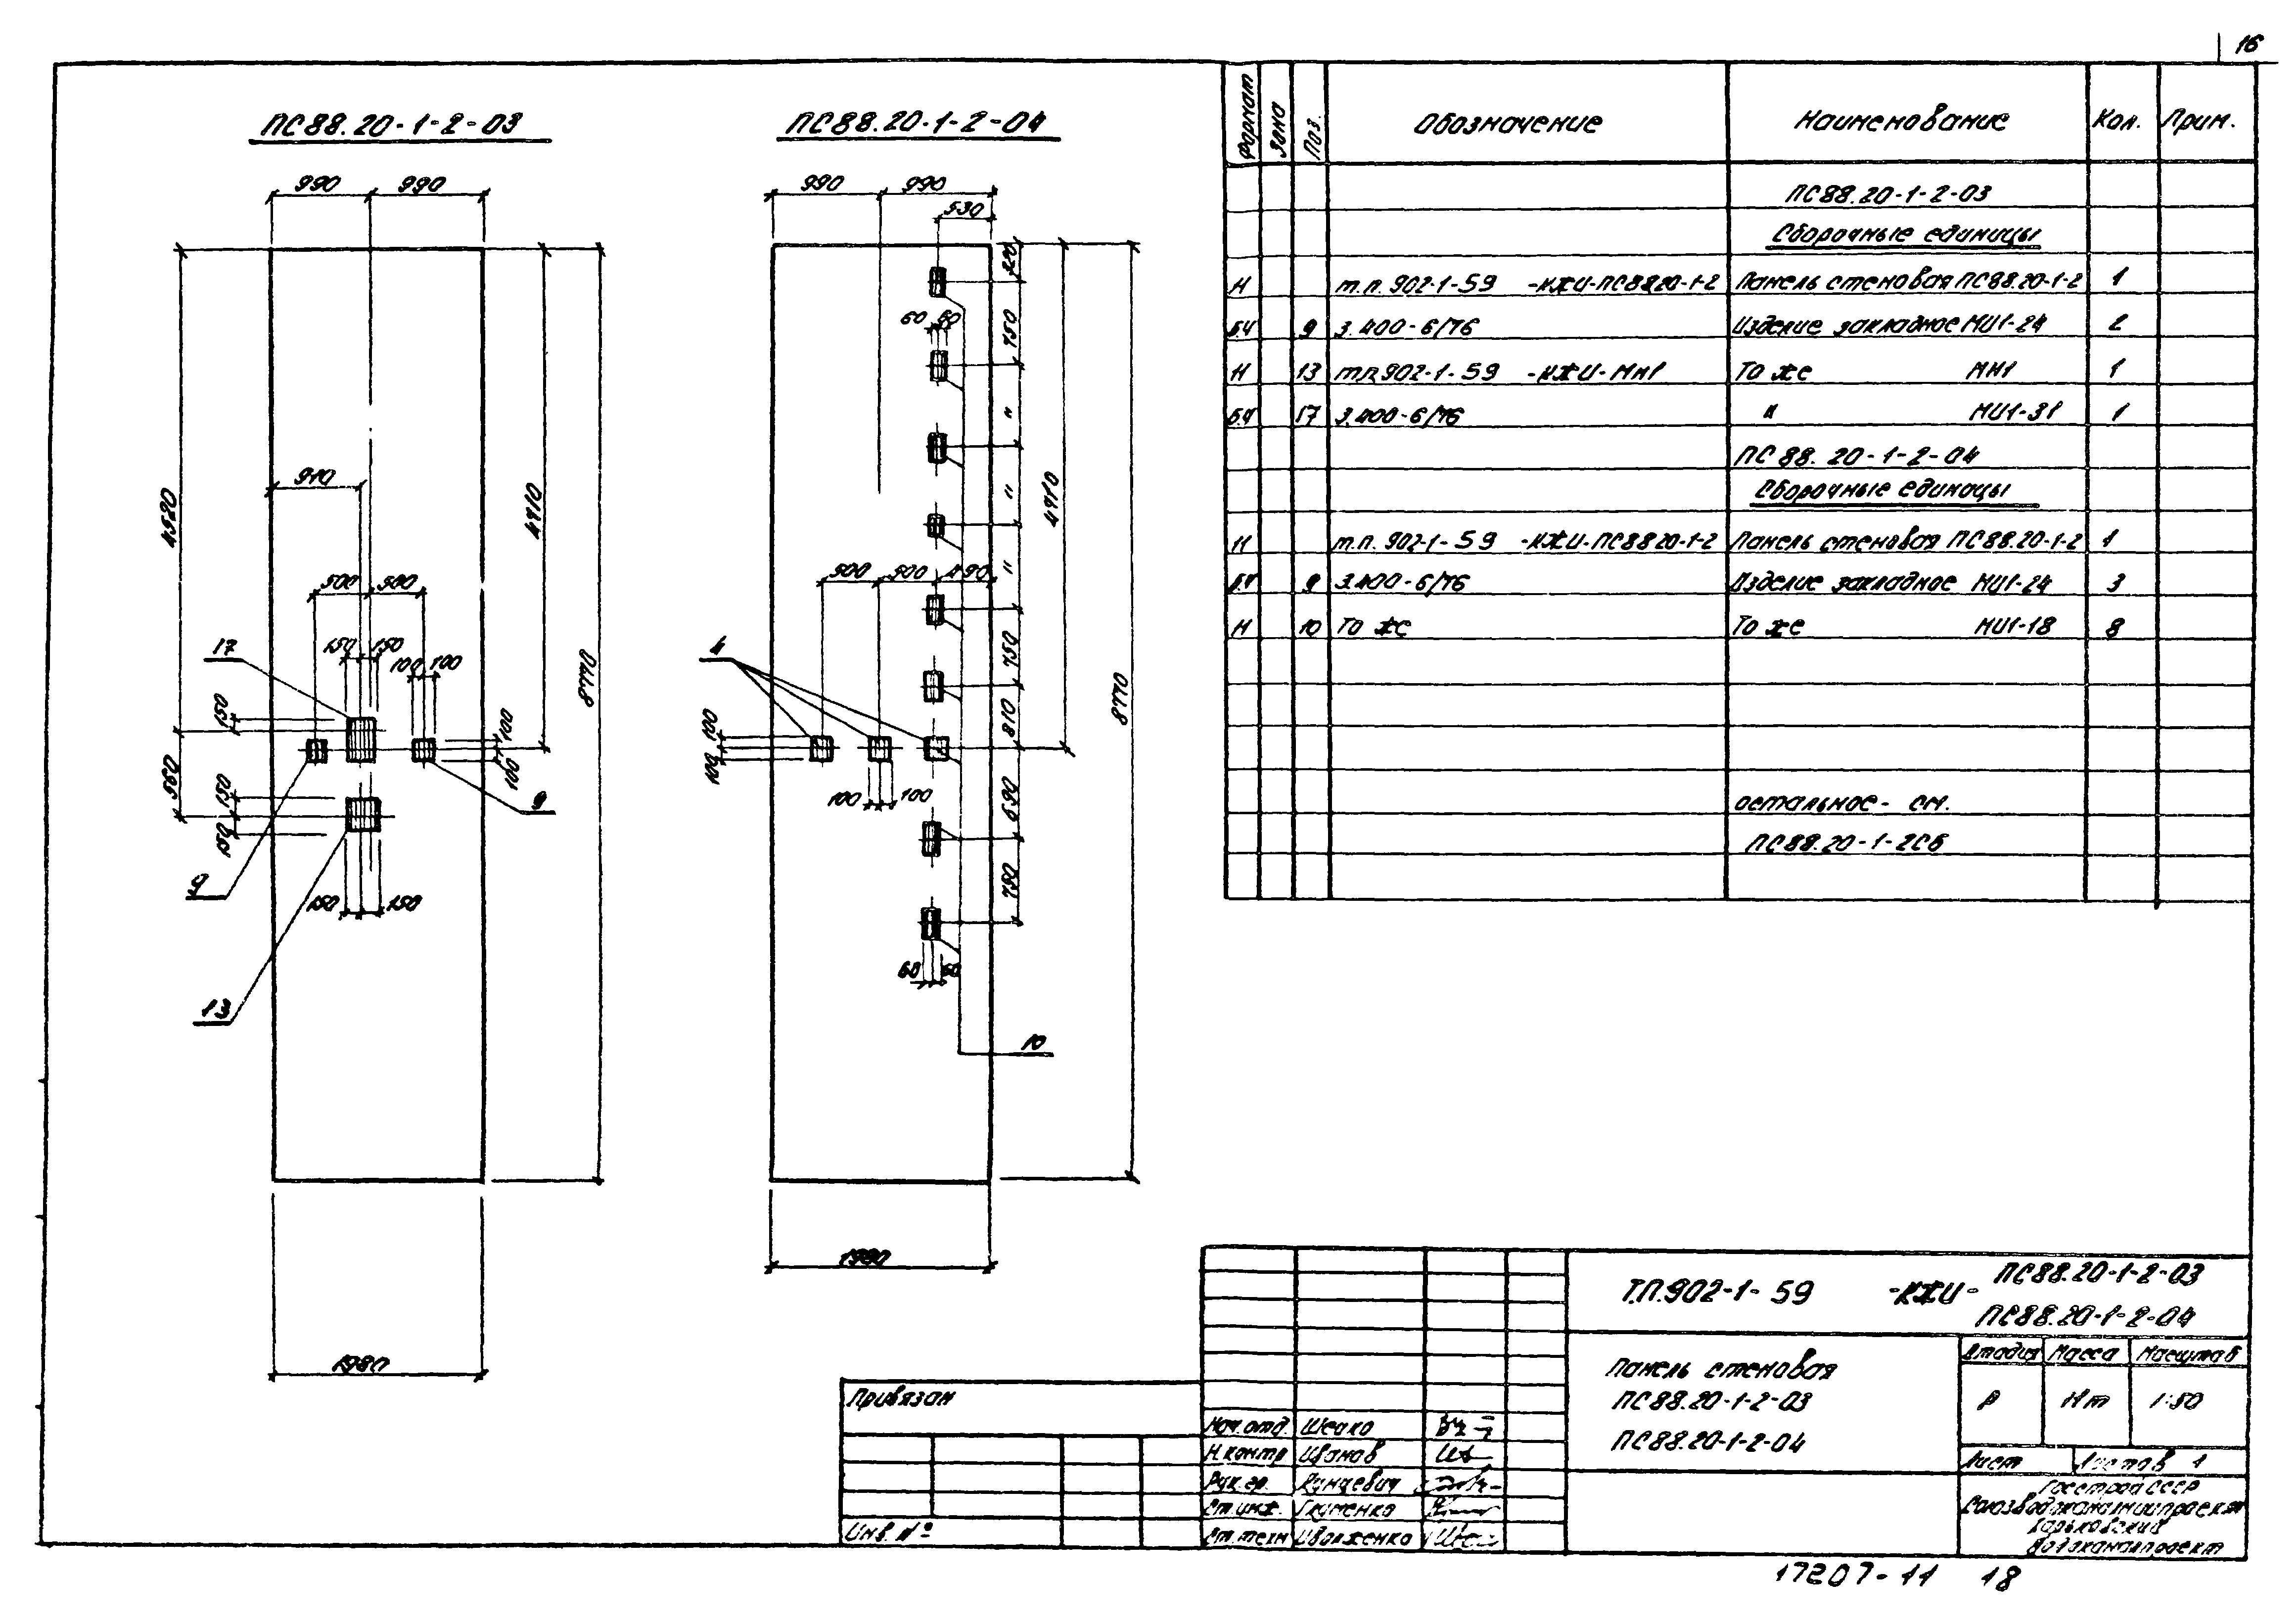 16
ПС88.20-1-2-03
990 990
910
4520
4710
8770
500 500
150 150
100 100
17
150
100
100
560
150
150
9
9
150 150
13
1980
ПС88.20-1-2-04
990 990
530
320
60 60
750
"
"
"
4710
500 500 490
750
4
100
100
810
8770
100 100
690
750
60 60
10
1980
Формат Зона Поз. Обозначение Наименование Кол. Прим.
ПС88.20-1-2-03
Сборочные единицы
И т.п. 902-1-59 -КЖИ-ПС88.20-1-2 Панель стеновая ПС88.20-1-2 1
Б.Ч 9 3.400-6/76 Изделие закладное МИ1-24 2
И 13 т.п. 902-1-59 -КЖИ-МН1 То же МН1 1
Б.Ч 17 3.400-6/76 " МИ1-31 1
ПС88.20-1-2-04
Сборочные единицы
И т.п. 902-1-59 -КЖИ-ПС88 20-1-2 Панель стеновая ПС88.20-1-2 1
Б.Ч 9 3.400-6/76 Изделие закладное МИ1-24 3
И 10 То же То же МИ1-18 8
остальное - см.
ПС88.20-1-2СБ
Т.П.902-1-59 -КЖИ- ПС88.20-1-2-03
ПС88.20-1-2-04
Панель стеновая
ПС88.20-1-2-03
ПС88.20-1-2-04
Стадия Масса Масштаб
Р 1:50
Лист Листов 1
Госстрой СССР
Союзводоканалниипроект
Харьковский
Водоканалпроект
Привязан
Инв. №
Нач. отд.
Н. контр Иванов
Рук. гр.
Ст. инж.
Ст. техн
17207-11 18